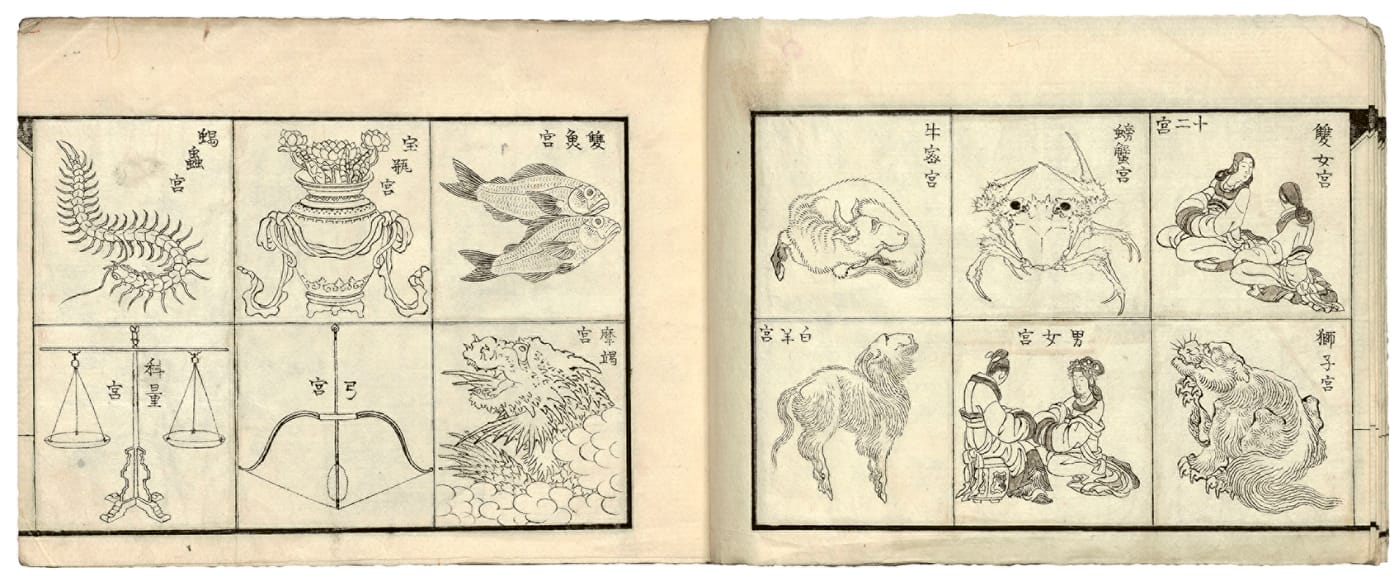 十二宮
雙女宮
獅子宮
螃蟹宮
男女宮
牛宻宮
白羊宮
雙魚宮
摩竭宮
宝瓶宮
弓宮
蝎蟲宮
科量宮